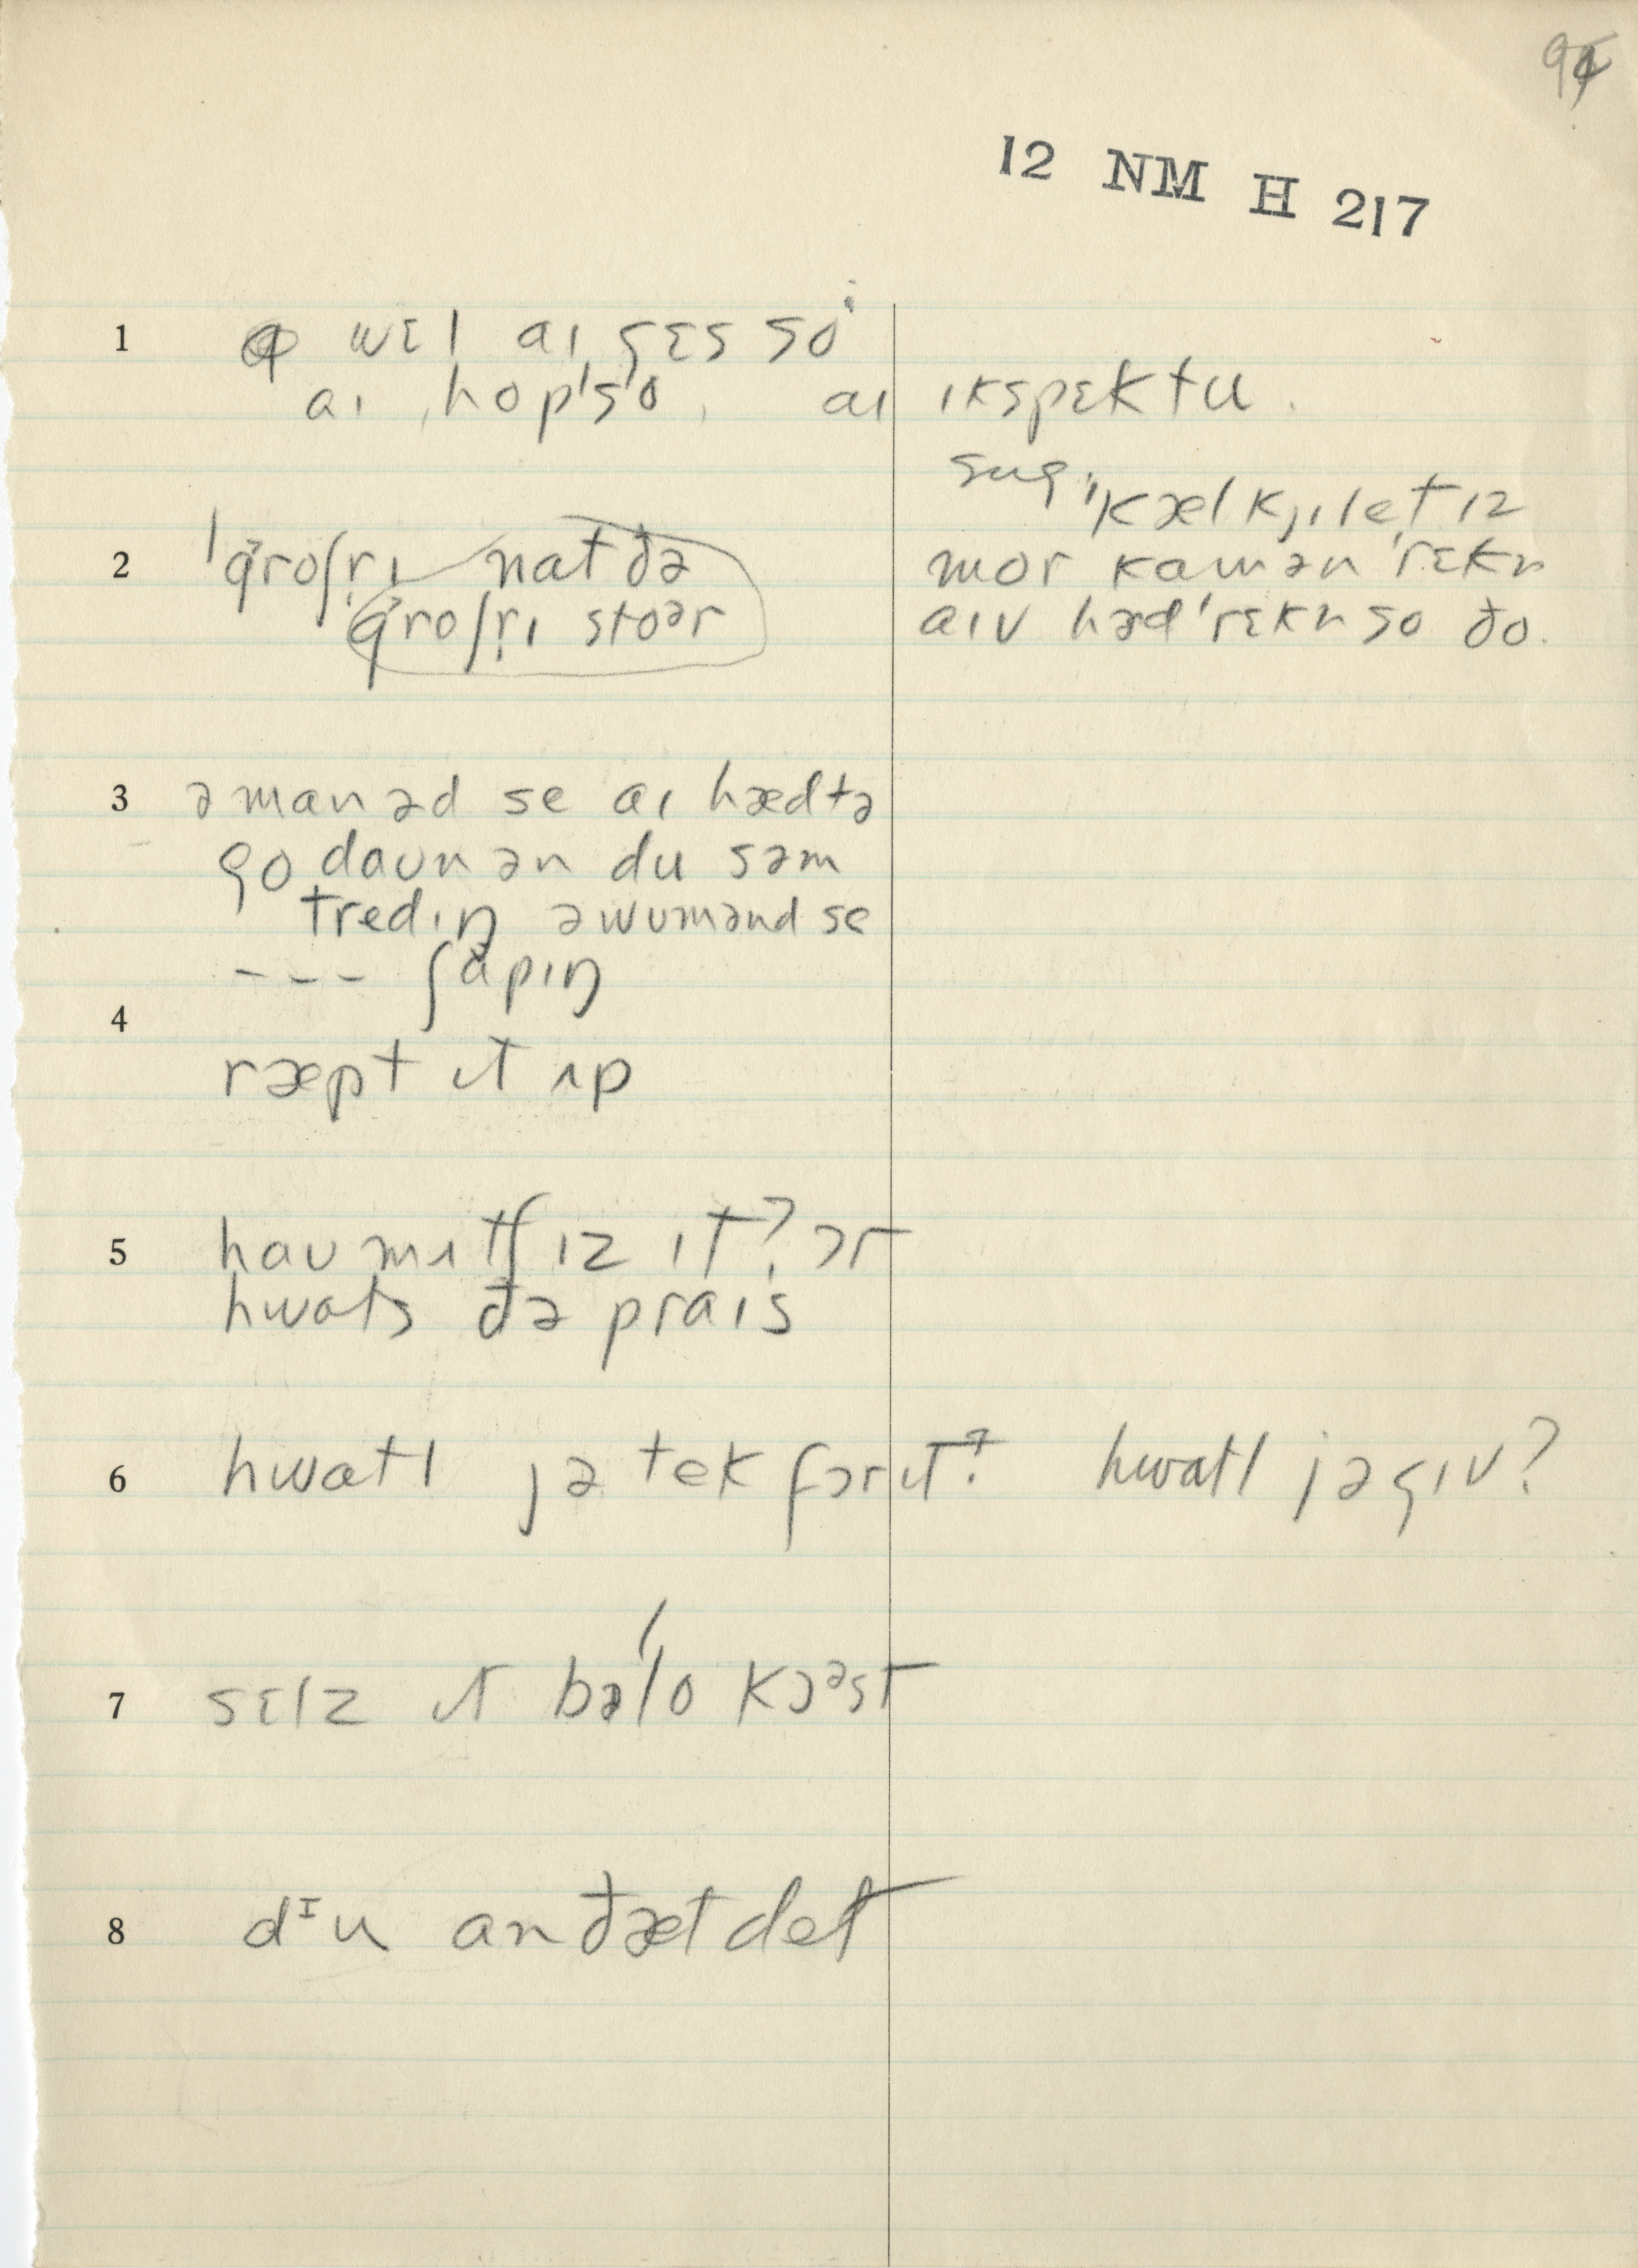 12 NM H 217
1 wɛl aɪ gɛs so
aɪ hop ˈso, aɪ ɪkspɛkt u.
2 ˈgroʃrɪ nat ðə
groʃrɪ stoər
sug, ˈkælkjɪˌlet ɪz
mor kamən ˈrɛkn
aɪv həd ˈrɛkn so ðo.
3 ə manəd se aɪ hædtə
go daʊn ən du səm
tredɪŋ ə wʊmənd se
--- ʃapɪŋ
4
ræpt ɪt ʌp
5 haʊ mʌtʃ ɪz ɪt? ɔr
hwats ðə praɪs
6 hwatl jə tek fɔr ɪt? hwatl jə gɪv?
7 sɛlz ɪt bəˈlo kɔəst
8 dᶦu an ðæt det